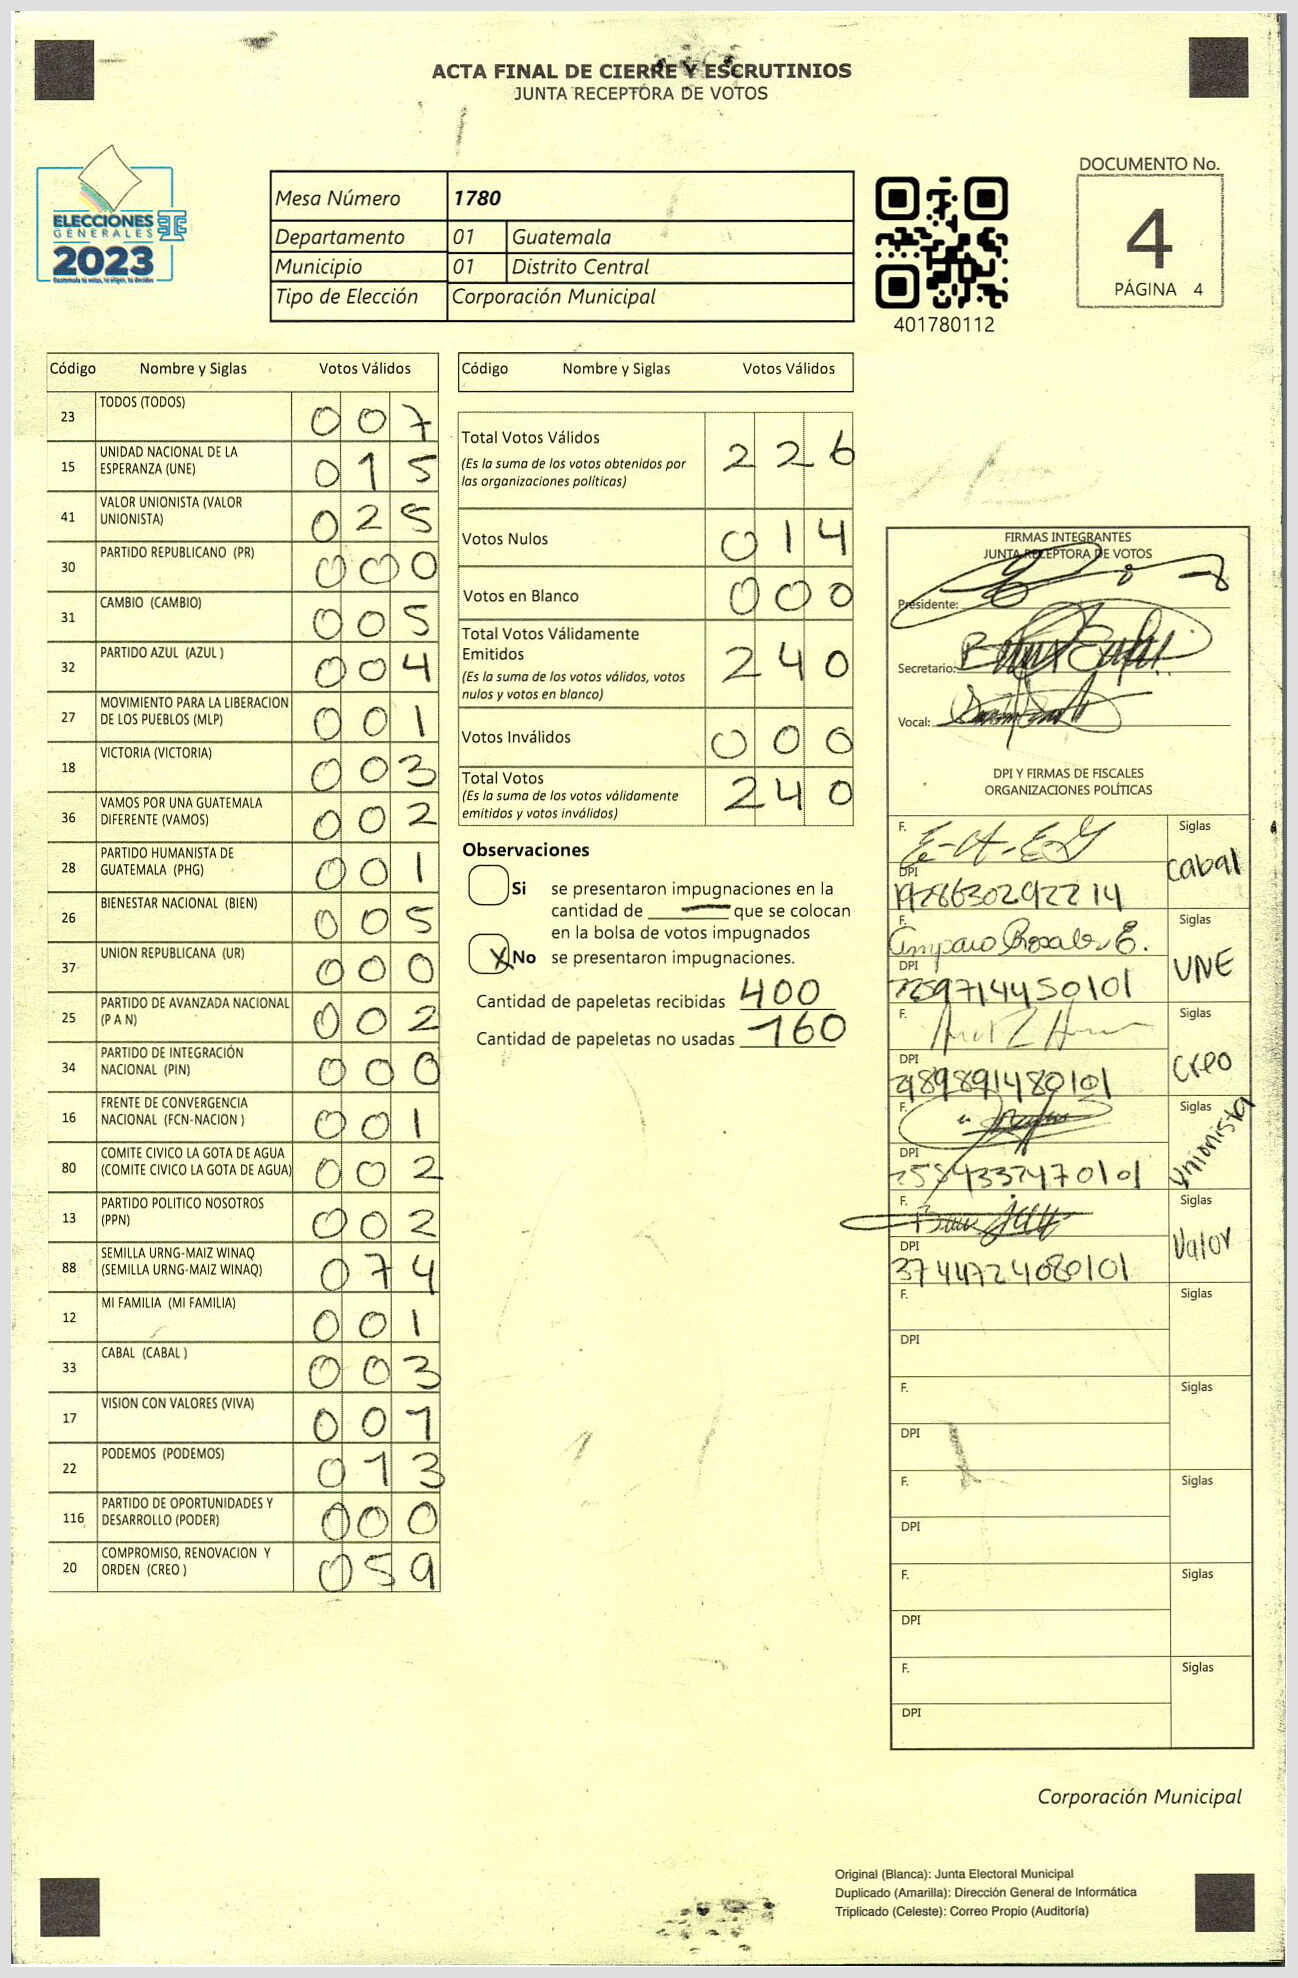 ACTA FINAL DE CIERRE Y ESCRUTINIOS
JUNTA RECEPTORA DE VOTOS
ELECCIONES
GENERALES
2023
Mesa Número 1780
Departamento 01 Guatemala
Municipio 01 Distrito Central
Tipo de Elección Corporación Municipal
401780112
DOCUMENTO No.
4
PÁGINA 4
Código Nombre y Siglas Votos Válidos
23 TODOS (TODOS) 007
15 UNIDAD NACIONAL DE LA
ESPERANZA (UNE) 015
41 VALOR UNIONISTA (VALOR
UNIONISTA) 025
30 PARTIDO REPUBLICANO (PR) 000
31 CAMBIO (CAMBIO) 005
32 PARTIDO AZUL (AZUL ) 004
27 MOVIMIENTO PARA LA LIBERACION
DE LOS PUEBLOS (MLP) 001
18 VICTORIA (VICTORIA) 003
36 VAMOS POR UNA GUATEMALA
DIFERENTE (VAMOS) 002
28 PARTIDO HUMANISTA DE
GUATEMALA (PHG) 001
26 BIENESTAR NACIONAL (BIEN) 005
37 UNION REPUBLICANA (UR) 000
25 PARTIDO DE AVANZADA NACIONAL
(P A N) 002
34 PARTIDO DE INTEGRACIÓN
NACIONAL (PIN) 000
16 FRENTE DE CONVERGENCIA
NACIONAL (FCN-NACION ) 001
80 COMITE CIVICO LA GOTA DE AGUA
(COMITE CIVICO LA GOTA DE AGUA) 002
13 PARTIDO POLITICO NOSOTROS
(PPN) 002
88 SEMILLA URNG-MAIZ WINAQ
(SEMILLA URNG-MAIZ WINAQ) 074
12 MI FAMILIA (MI FAMILIA) 001
33 CABAL (CABAL ) 003
17 VISION CON VALORES (VIVA) 001
22 PODEMOS (PODEMOS) 013
116 PARTIDO DE OPORTUNIDADES Y
DESARROLLO (PODER) 000
20 COMPROMISO, RENOVACION Y
ORDEN (CREO ) 059
Código Nombre y Siglas Votos Válidos
Total Votos Válidos 226
(Es la suma de los votos obtenidos por
las organizaciones políticas)
Votos Nulos 014
Votos en Blanco 000
Total Votos Válidamente
Emitidos 240
(Es la suma de los votos válidos, votos
nulos y votos en blanco)
Votos Inválidos 000
Total Votos 240
(Es la suma de los votos válidamente
emitidos y votos inválidos)
Observaciones
Si se presentaron impugnaciones en la
cantidad de — que se colocan
en la bolsa de votos impugnados
X No se presentaron impugnaciones.
Cantidad de papeletas recibidas 400
Cantidad de papeletas no usadas 160
FIRMAS INTEGRANTES
JUNTA RECEPTORA DE VOTOS
Presidente:
Secretario:
Vocal:
DPI Y FIRMAS DE FISCALES
ORGANIZACIONES POLÍTICAS
F. Siglas
Cabal
DPI
F. Siglas
Amparo Rosales E.
UNE
DPI
F. Siglas
Creo
DPI
F. Siglas
Unionista
DPI
F. Siglas
Valor
DPI
F. Siglas
DPI
F. Siglas
DPI
F. Siglas
DPI
F. Siglas
DPI
F. Siglas
DPI
Corporación Municipal
Original (Blanca): Junta Electoral Municipal
Duplicado (Amarilla): Dirección General de Informática
Triplicado (Celeste): Correo Propio (Auditoría)